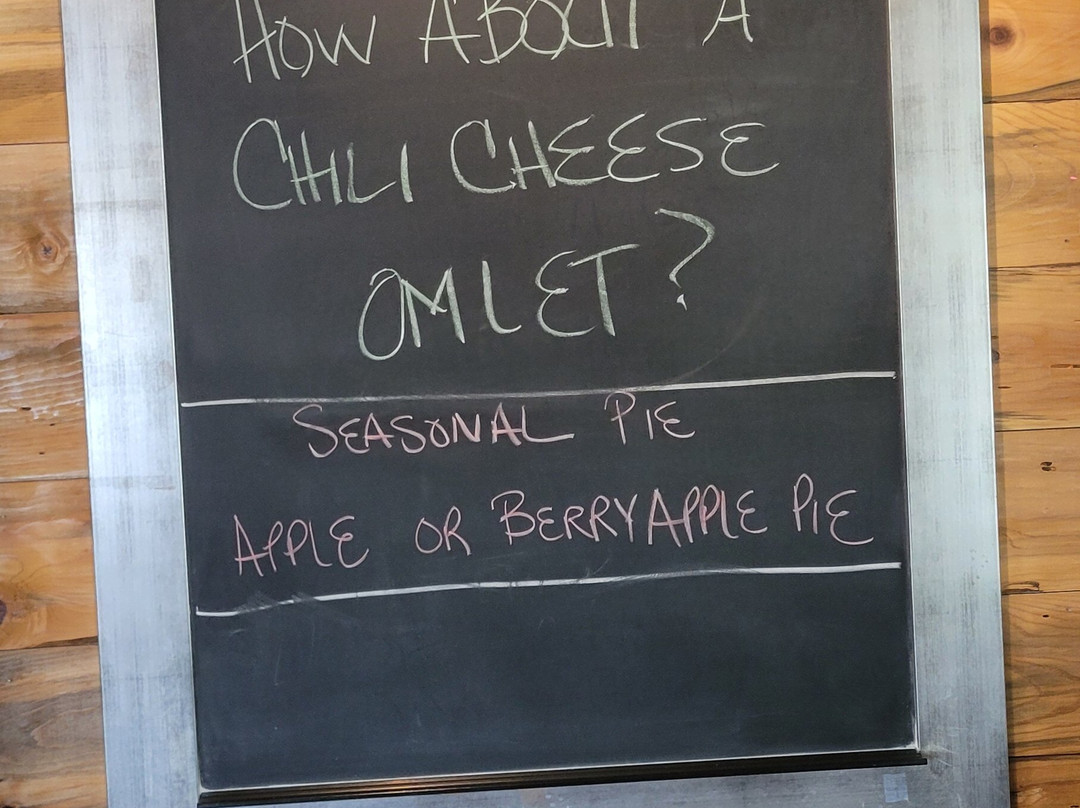 HOW ABOUT A
CHILI CHEESE
OMLET?
SEASONAL PIE
APPLE OR BERRYAPPLE PIE